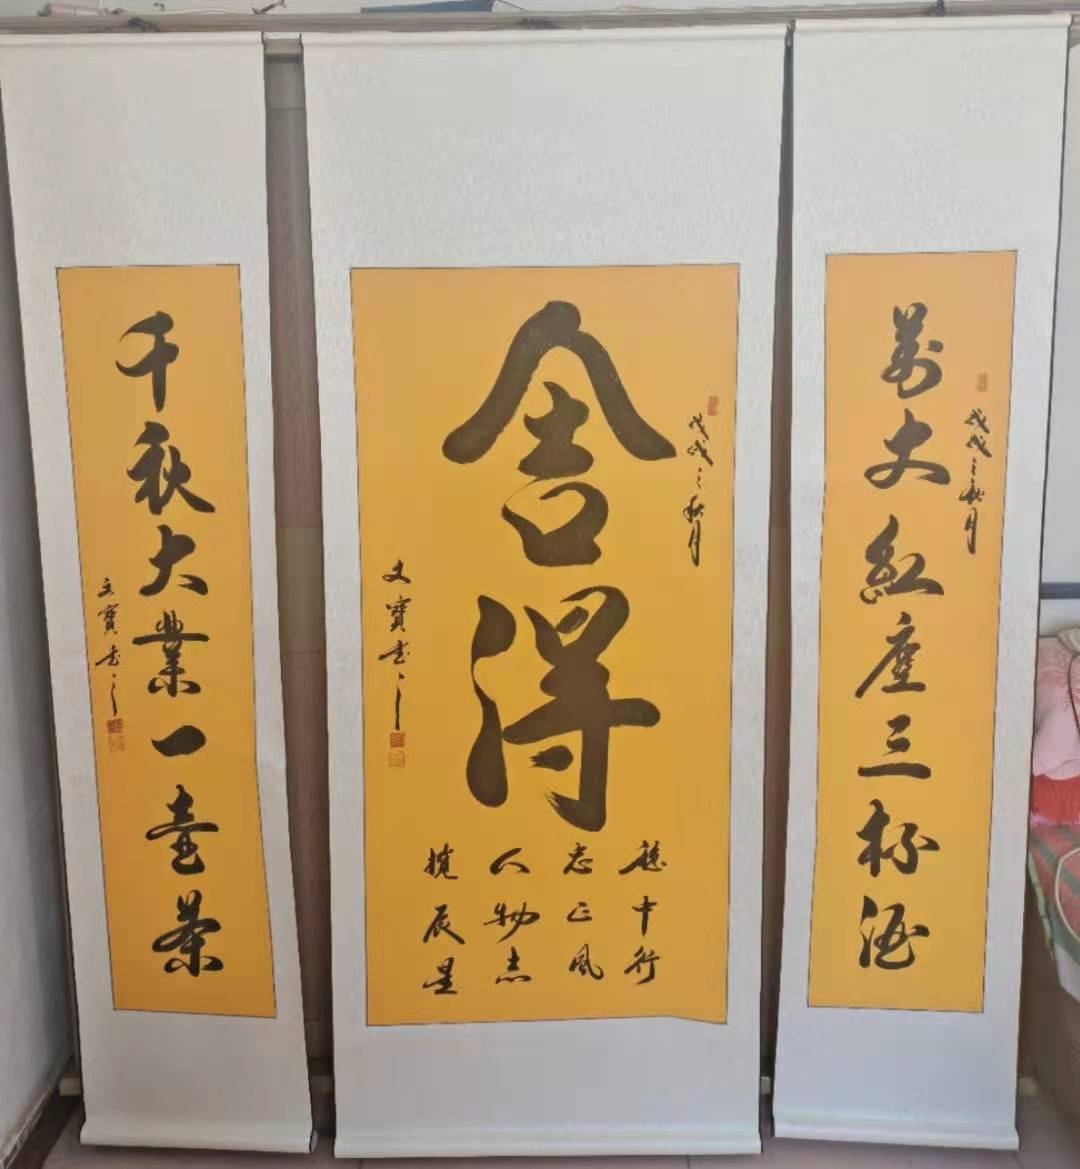 萬丈紅塵三杯酒
戊戌之秋月
舍得
戊戌之秋月
穩中行
志正風
人物志
攬辰星
文寶書
千秋大業一壺茶
文寶書